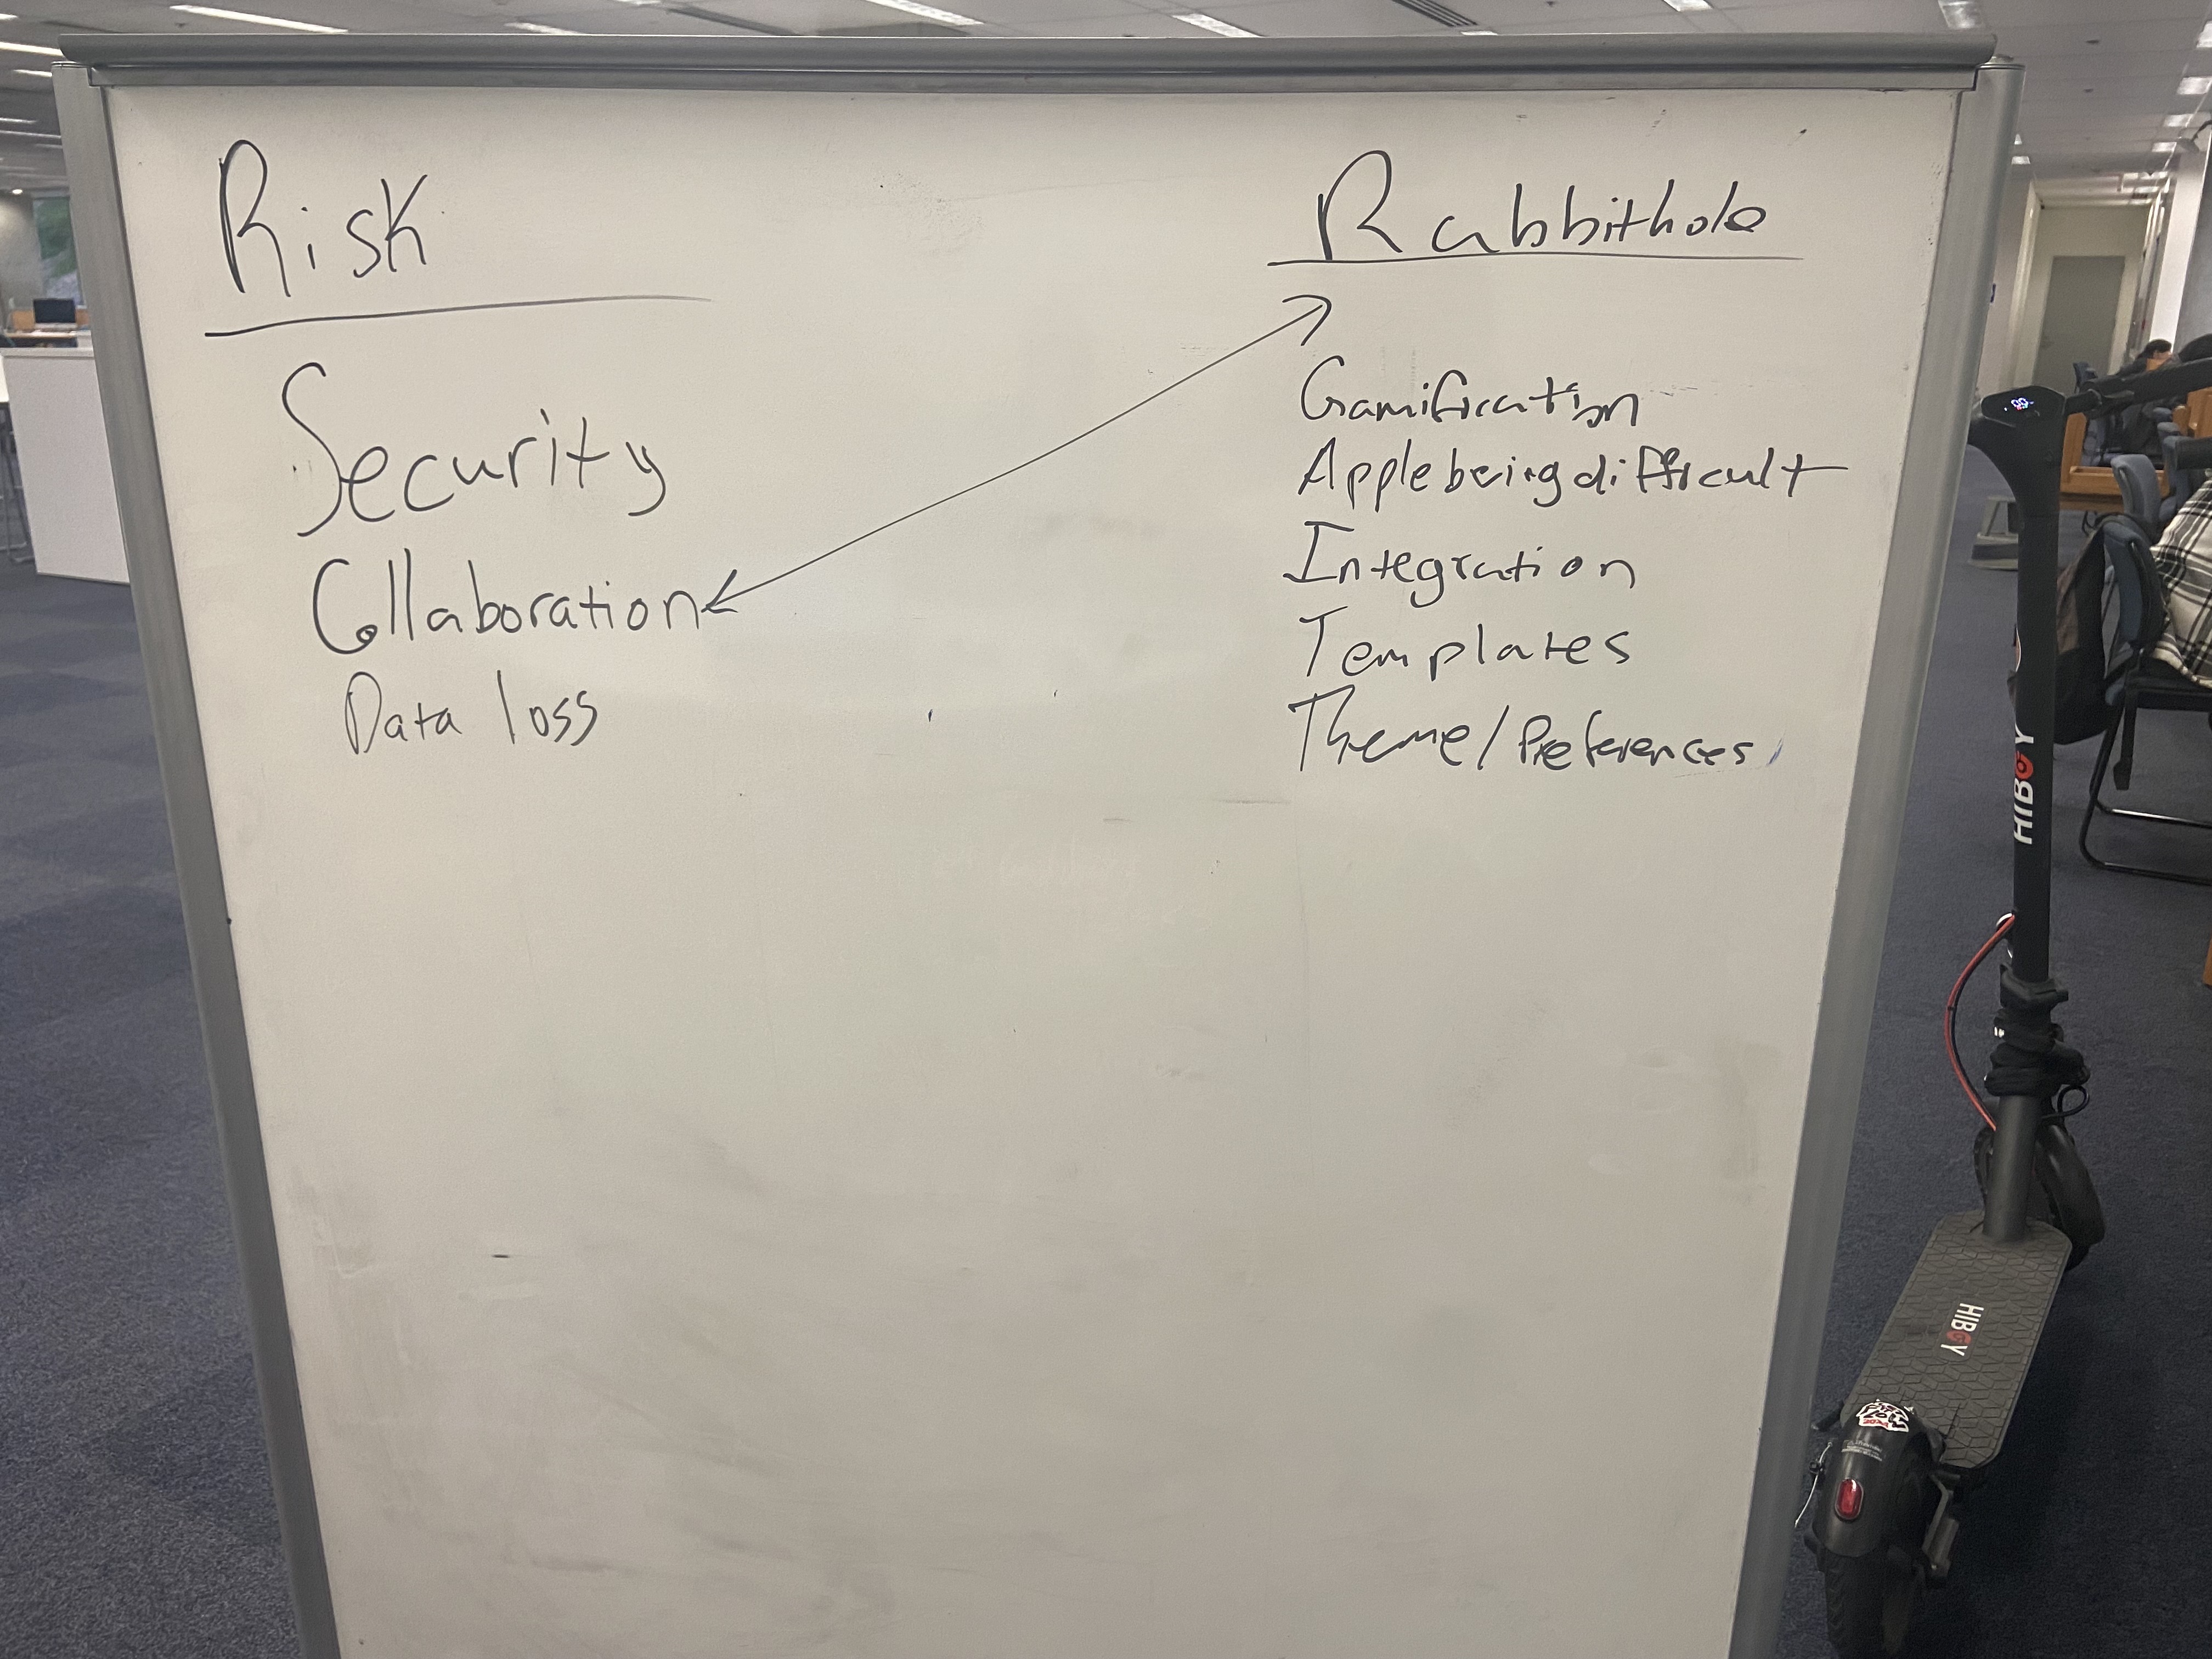 Risk
Security
Collaboration
Data loss
Rabbithole
Gamification
Apple being difficult
Integration
Templates
Theme/Preferences
HIBOY
HIBOY